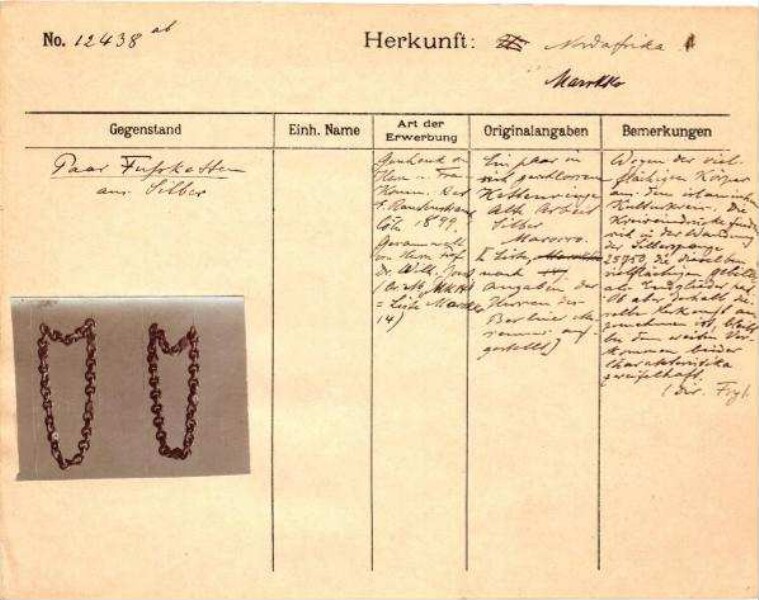 No. 12438 ab
Herkunft: Nordafrika
Marokko
Gegenstand
Einh. Name
Art der
Erwerbung
Originalangaben
Bemerkungen
Paar Fußketten
aus Silber
Geschenk der
Herrn u. Frau
Komm. Rat
E. Rautenstrauch
Cöln 1899.
Gesammelt
von Herrn Prof.
Dr. Wilh. Joest
= Liste Marokko
14)
Ein paar in
sich geschlossene
Kettenringe
Alte Arbeit
Silber
Marocco.
nach
Angaben der
Herren der
Berliner
gestellt)
Wegen der viel-
flächigen Körper
aus dem islamischen
Kulturkreis. Die
Kreiseindrücke finden
sich in der Wandung
der Silberspange
25950, die dieselben
vielflächigen Gebilde
als Endglieder hat.
Ob aber deshalb die-
selbe Herkunft an-
zunehmen ist, bleibt
bei dem weiten Vor-
kommen beider
Charakteristika
zweifelhaft.